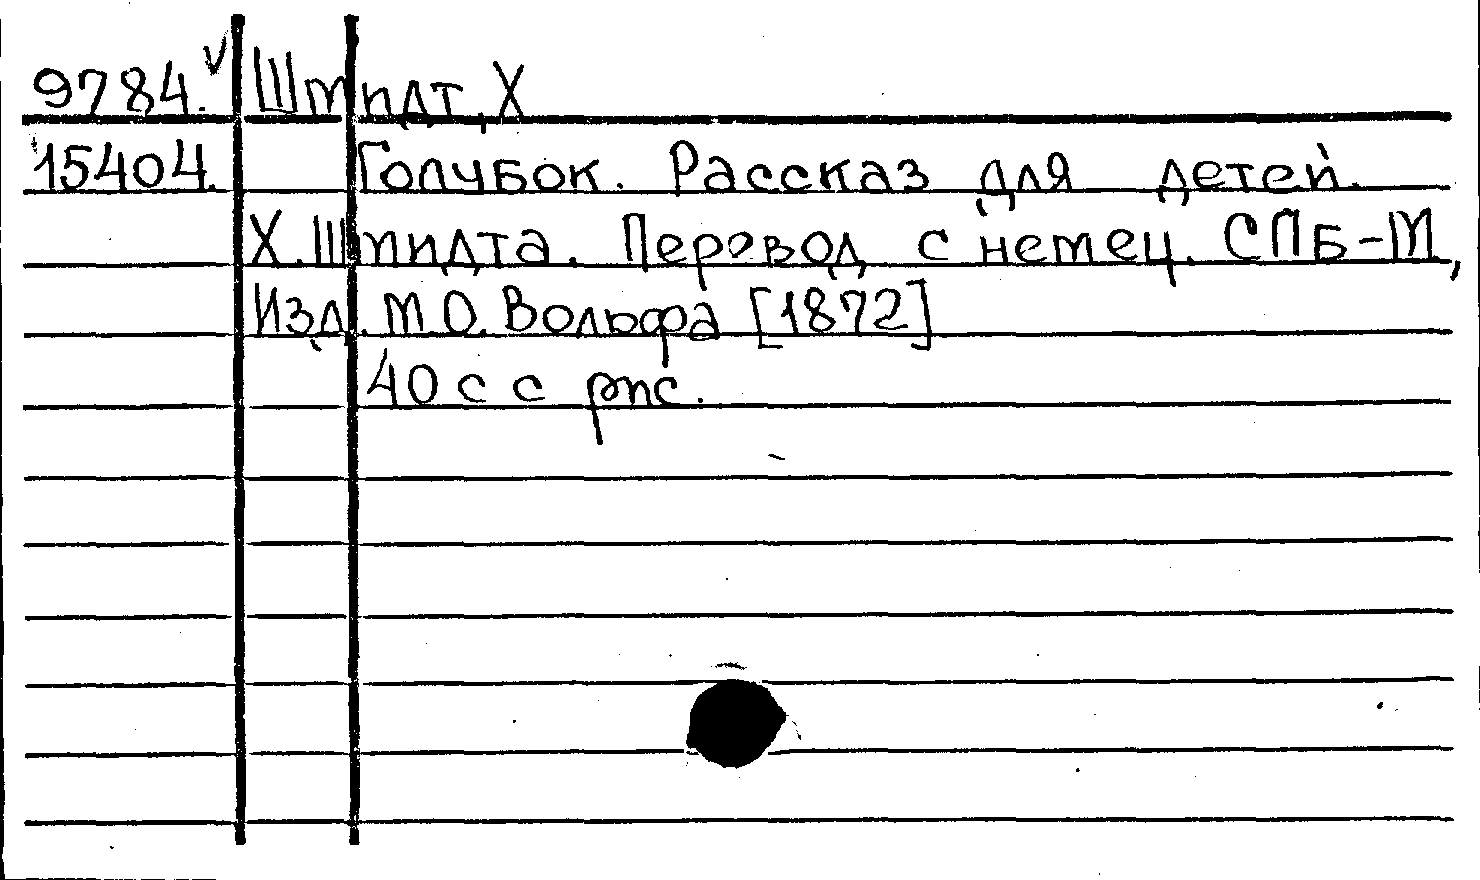 9784. V Шмидт, Х
15404. Голубок. Рассказ для детей.
Х. Шмидта. Перевод с немец. СПБ-М,
Изд. М.О. Вольфа [1872]
40 с с рис.